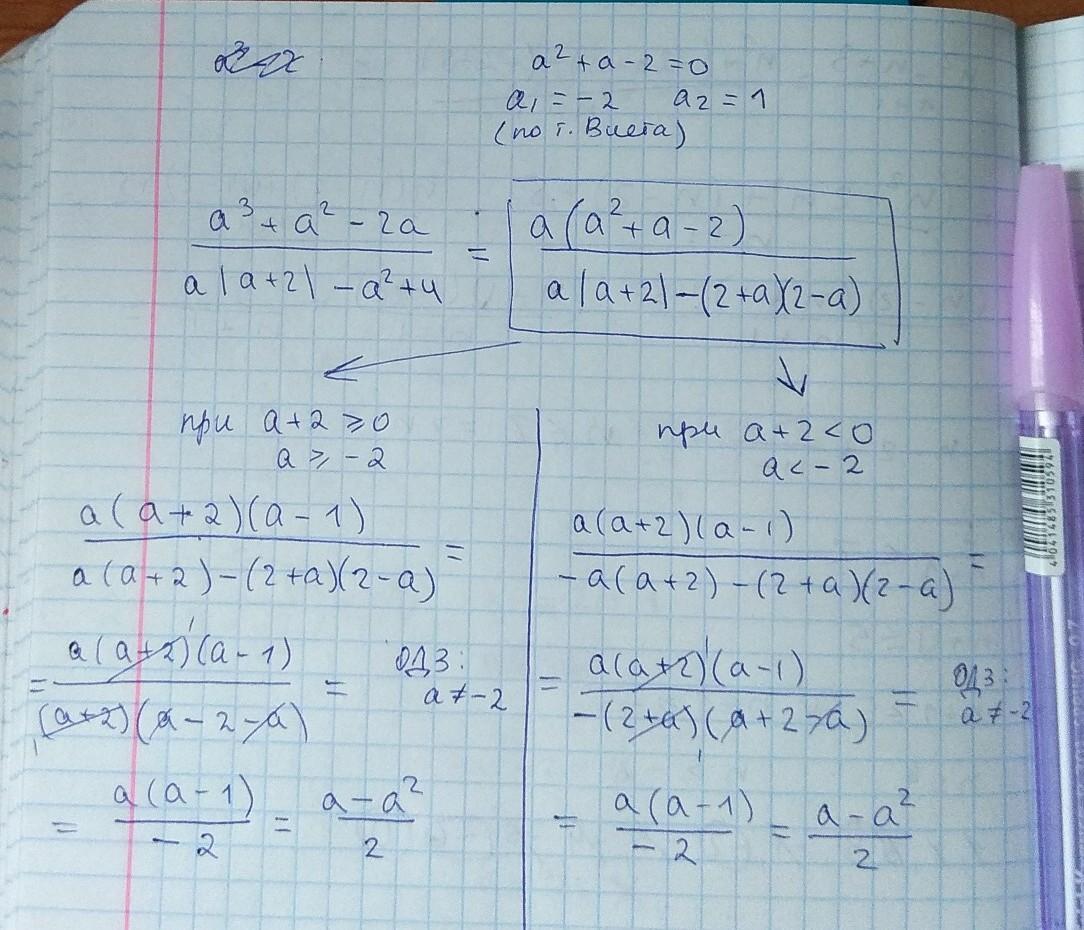 a² + a - 2 = 0
a₁ = -2 a₂ = 1
(по т. Виета)
(a³ + a² - 2a)/(a|a+2| - a² + 4) = (a(a² + a - 2))/(a|a+2| - (2+a)(2-a))
при a+2 ⩾ 0
a ⩾ -2
(a(a+2)(a-1))/(a(a+2) - (2+a)(2-a)) =
= (a(a+2)(a-1))/((a+2)(a-2-a)) = ОДЗ: a ≠ -2
= (a(a-1))/(-2) = (a-a²)/2
при a+2 < 0
a < -2
(a(a+2)(a-1))/(-a(a+2) - (2+a)(2-a)) =
= (a(a+2)(a-1))/(-(2+a)(a+2-a)) = ОДЗ: a ≠ -2
= (a(a-1))/(-2) = (a-a²)/2
4041485310594